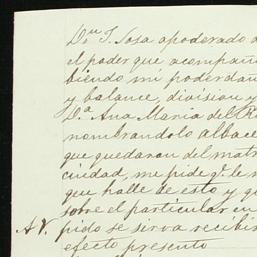 Dn. J. Sosa apoderado
el poder que acompañ
biendo mi poderdan
y balance, division y
Da. Ana Maria del
nombrandolo albace
que quedaron del mat
ciudad, me pide qe. le
que halle de esto y q
sobre el particular en
AV. pido se sirva recibi
efecto presento